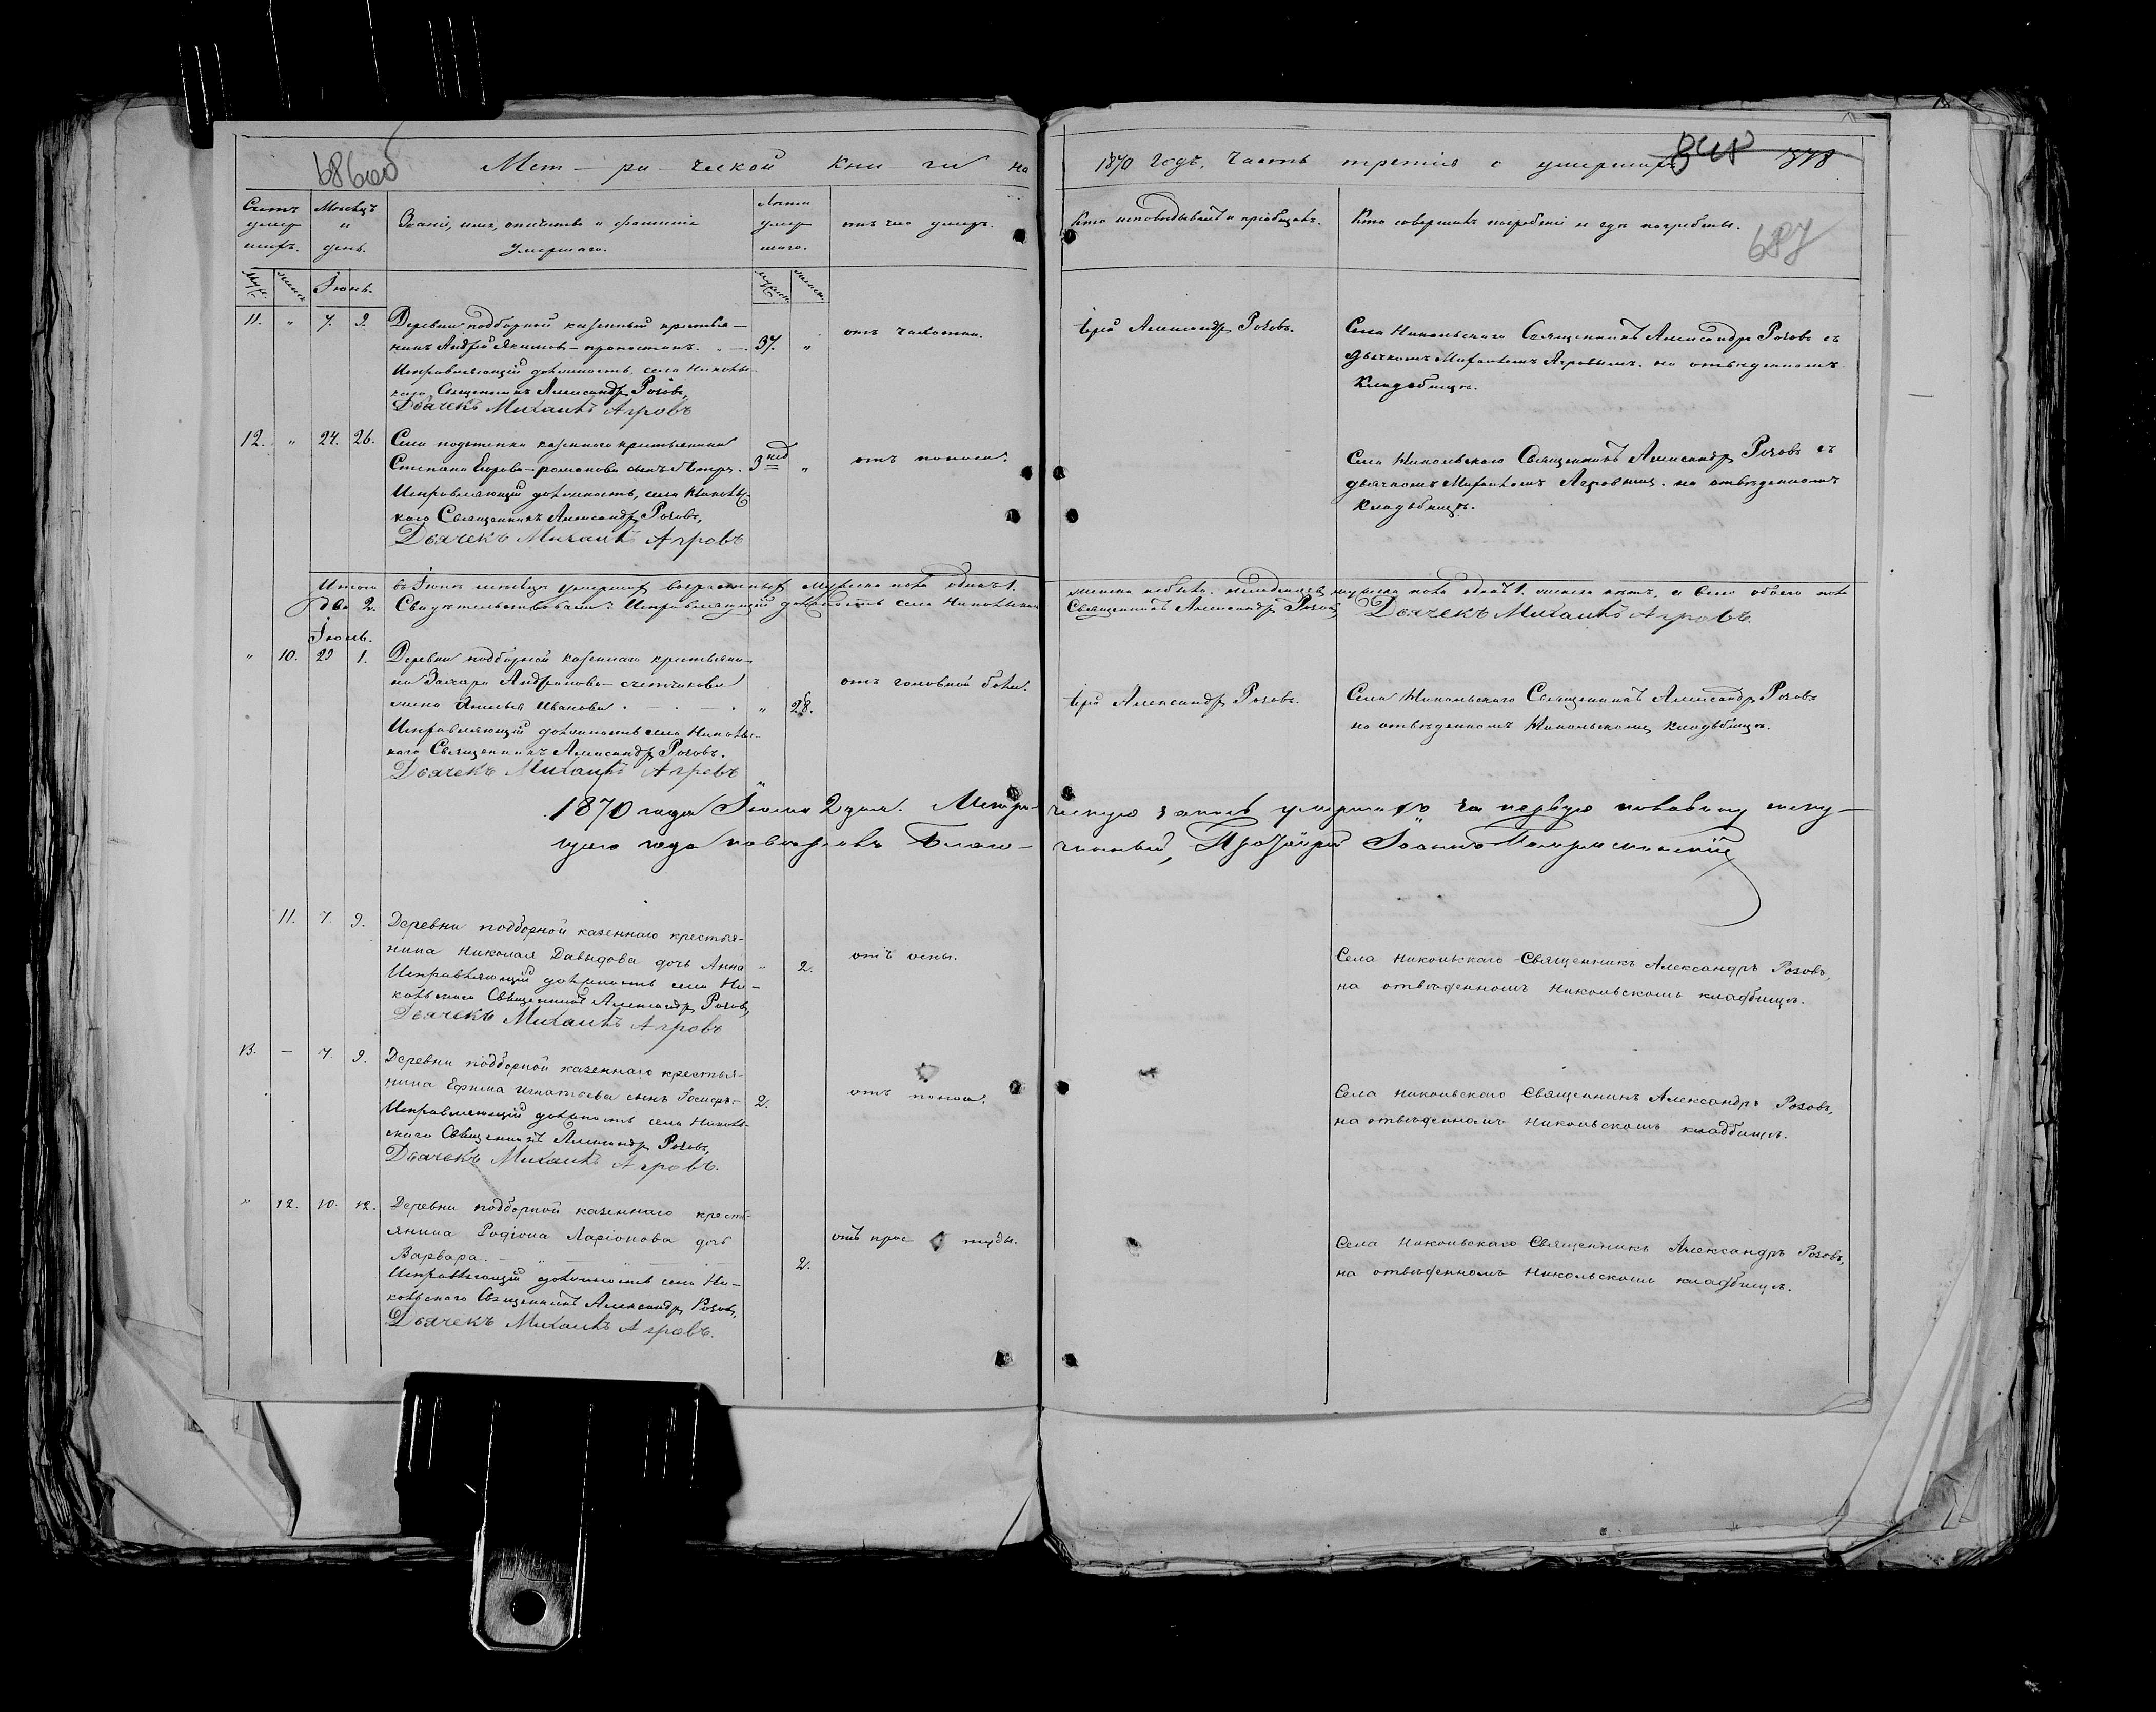 686об
Мет-ри-ческой кни-ги на
1870 годъ, часть третія о умершихъ
378
687
Счетъ умер шихъ.
Мѣсяцъ и день.
Званіе, имя, отчество и фамилія умершаго.
Лѣта умер шаго.
отъ чего умеръ.
Кто исповѣдывалъ и пріобщалъ.
Кто совершалъ погребеніе и гдѣ погребены.
Іюнь.
11. " 7. 9.
Деревни подборной казенный крестья-
нинъ Андрей Якимовъ
37. "
отъ чахотки.
Исправляющій должность села Николь-
скаго Священникъ Александръ Розовъ,
Дьячекъ Михаилъ Агровъ
Іерей Александръ Розовъ.
Села Никольскаго Священникъ Александръ Розовъ съ
дьячкомъ Михаиломъ Агровымъ. на отведенномъ
Кладбищѣ.
12. " 24. 26.
Села подстепки казеннаго крестьянина
Степана Егорова-романова сынъ Петръ.
3 нед "
отъ поноса.
Исправляющій должность, села Николь-
скаго Священникъ Александръ Розовъ,
Дьячекъ Михаилъ Агровъ
Села Никольскаго Священникъ Александръ Розовъ съ
дьячкомъ Михаиломъ Агровымъ. на отведенномъ
Кладбищѣ.
Итого въ Іюнѣ мѣсяцѣ умершихъ возрастныхъ мужеска пола одинъ 1.
женска небыло. младенцевъ мужеска пола одинъ 1. женска нѣтъ, а всего обоего пола
два 2. Свидѣтельствовали: Исправляющій должность села Никольскаго
Священникъ Александръ Розовъ, Дьячекъ Михаилъ Агровъ.
Іюль.
" 10. 29 1.
Деревни подборной казеннаго крестьяни-
на Захара Андронова-счетчикова
жена Иванова
" 28.
отъ головной боли.
Исправляющій должность села Николь-
скаго Священникъ Александръ Розовъ.
Дьячекъ Михаилъ Агровъ
Іерей Александръ Розовъ.
Села Никольскаго Священникъ Александръ Розовъ
на отведенномъ Никольскомъ кладбищѣ.
1870 года Іюля 2 дня. Метри-
ческую запись умершихъ за первую половину теку-
щаго года повѣрялъ Благо-
чинный, Протоіерей Іоаннъ
11. 7. 9.
Деревни подборной казеннаго крестья-
нина Николая Давыдова дочь Анна
" 2.
отъ оспы.
Исправляющій должность села Ни-
кольскаго Священникъ Александръ Розовъ,
Дьячекъ Михаилъ Агровъ
Села Никольскаго Священникъ Александръ Розовъ,
на отведенномъ Никольскомъ кладбищѣ.
13. - 7. 9.
Деревни подборной казеннаго крестья-
нина Ефима Игнатьева сынъ Іосифъ-
2.
отъ поноса.
Исправляющій должность села Николь-
скаго Священникъ Александръ Розовъ,
Дьячекъ Михаилъ Агровъ.
Села Никольскаго Священникъ Александръ Розовъ,
на отведенномъ Никольскомъ кладбищѣ.
" 12. 10. 12.
Деревни подборной казеннаго кресть-
янина Родіона Ларіонова дочь
Варвара.
2.
отъ прос туды.
Исправляющій должность села Ни-
кольскаго Священникъ Александръ Розовъ,
Дьячекъ Михаилъ Агровъ.
Села Никольскаго Священникъ Александръ Розовъ,
на отведенномъ Никольскомъ кладбищѣ.